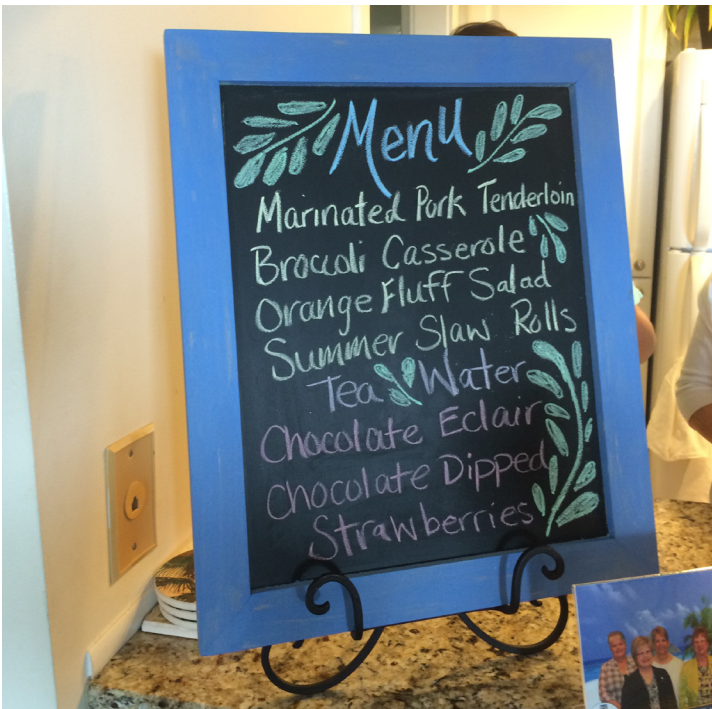 Menu
Marinated Pork Tenderloin
Broccoli Casserole
Orange Fluff Salad
Summer Slaw Rolls
Tea Water
Chocolate Eclair
Chocolate Dipped
Strawberries